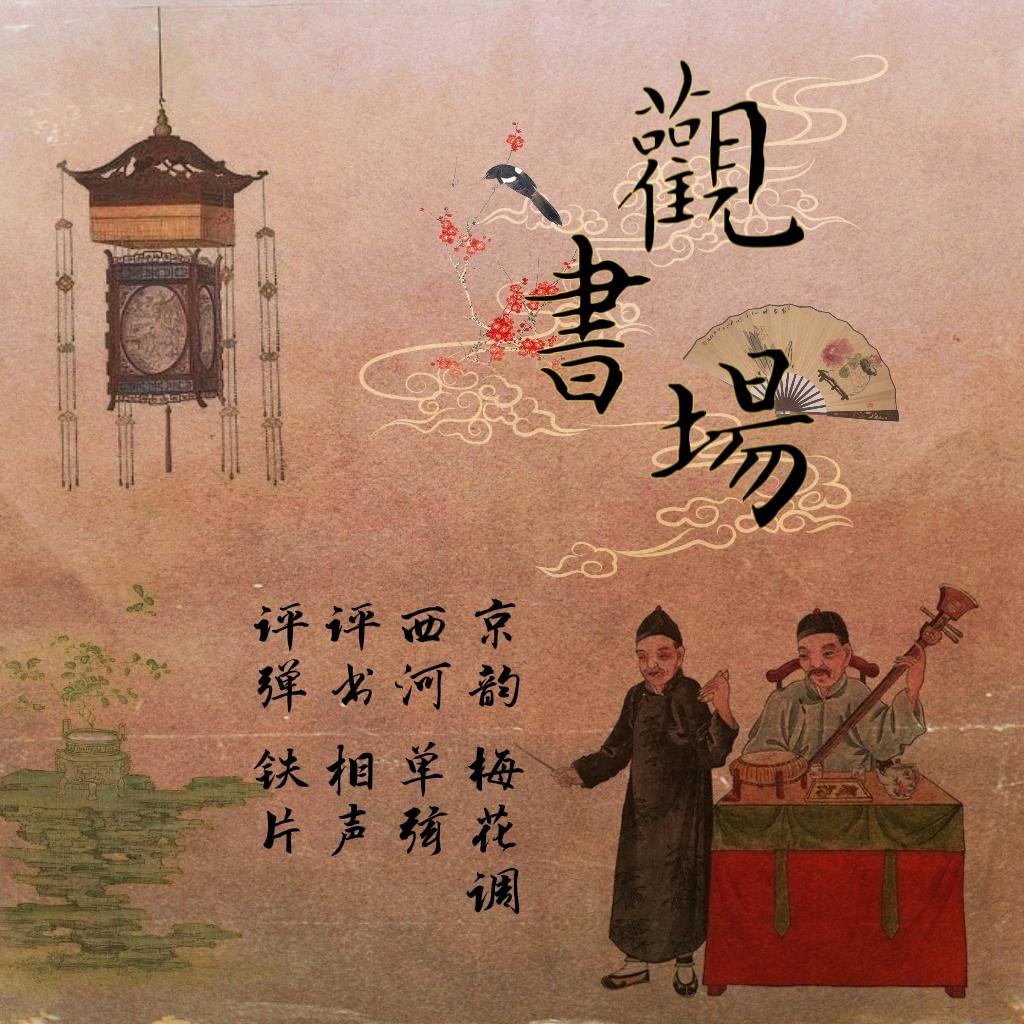 觀書場
京韵 梅花调
西河 单弦
评书 相声
评弹 铁片